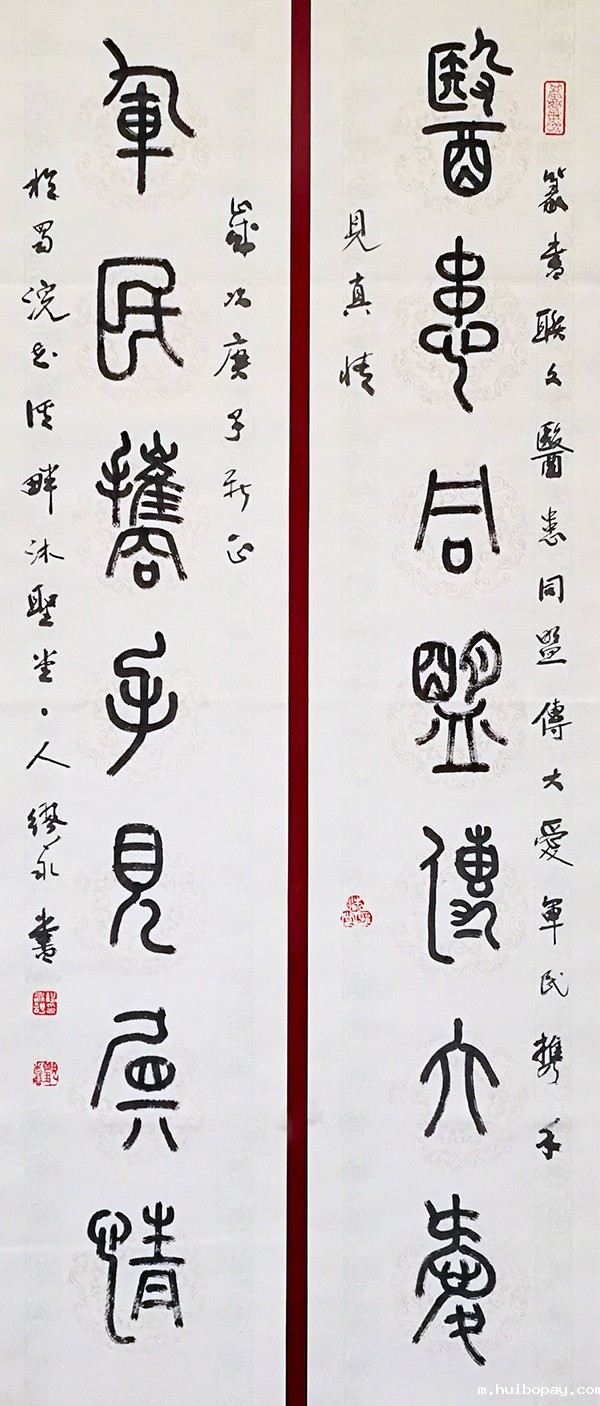 篆書聯文醫患同盟傳大愛軍民攜手
醫患同盟傳大愛
見真情
歲次庚子新正
軍民攜手見真情
於蜀浣花溪畔沐聖堂主人繆永書
m.huibopay.com